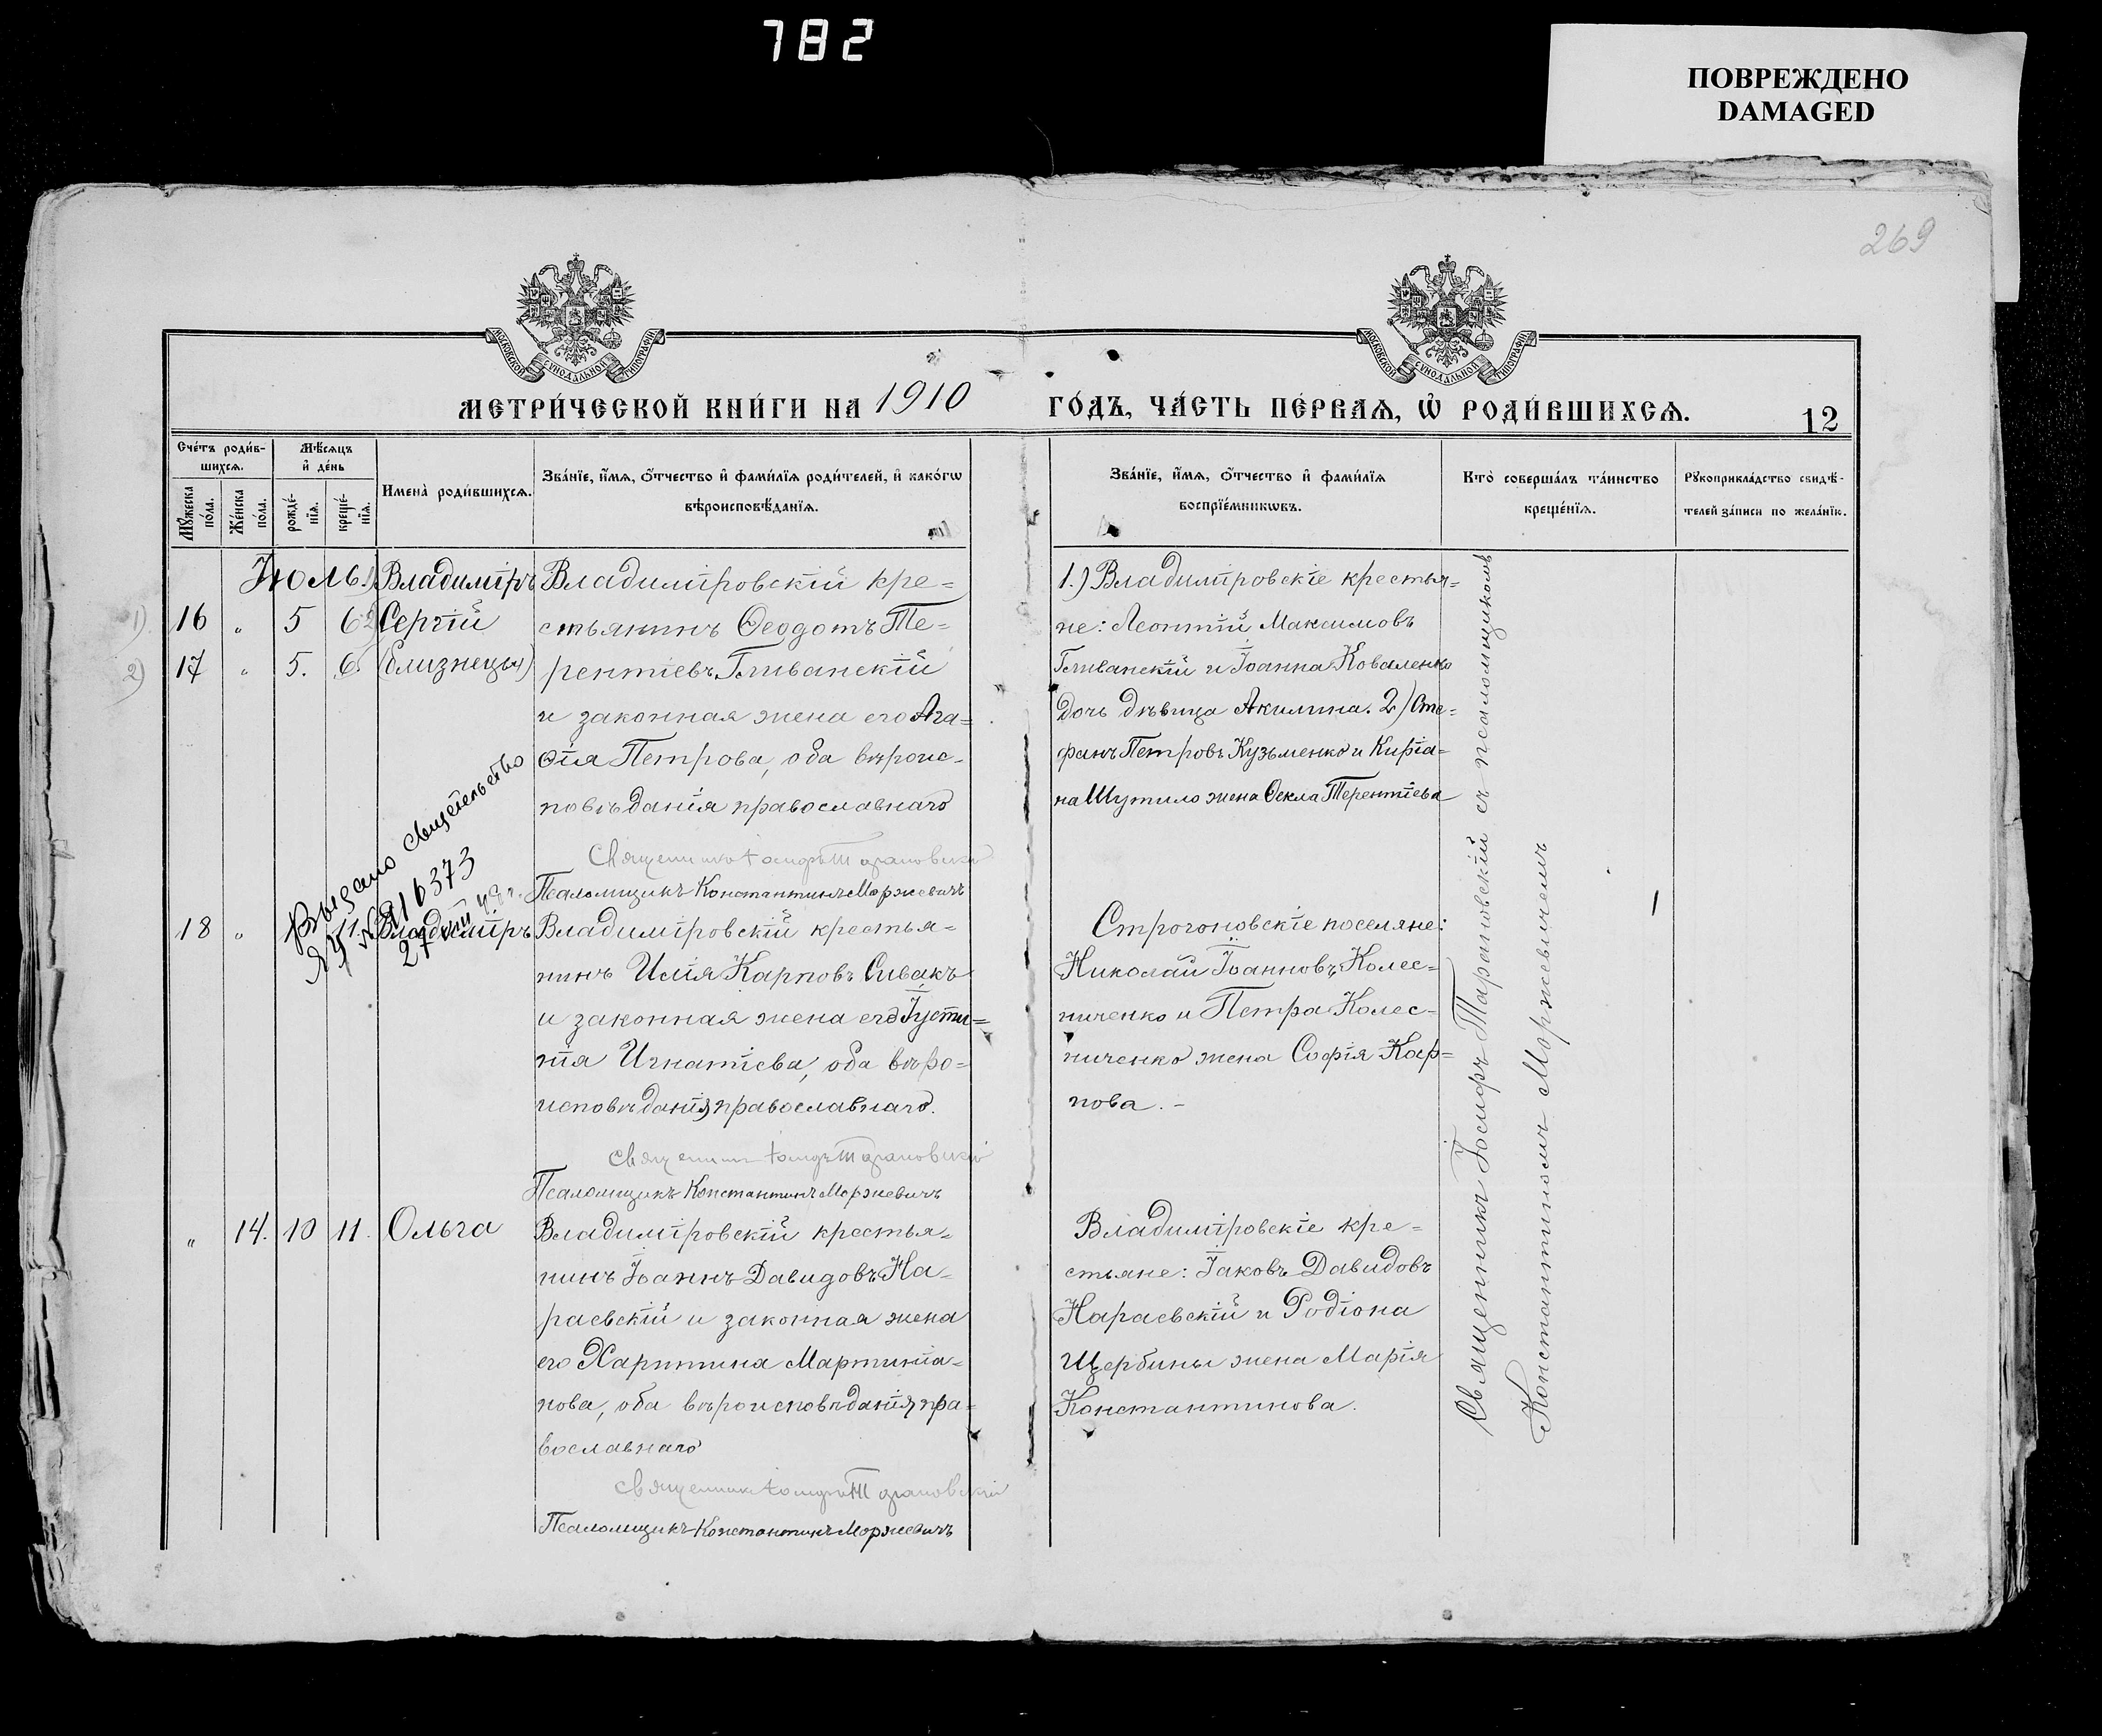 782
ПОВРЕЖДЕНО
DAMAGED
269
МОСКОВСКОЙ СѴНОДАЛЬНОЙ ТИПОГРАФІИ
МОСКОВСКОЙ СѴНОДАЛЬНОЙ ТИПОГРАФІИ
МЕТРИ́ЧЕСКОЙ КНИ́ГИ НА 1910
ГО́ДЪ, ЧА́СТЬ ПЕ́РВАѦ, Ѡ҆ РОДИ́ВШИХСѦ.
12
Сче́тъ роди́в-
шихсѧ.
Мѣ́сѧцъ
и҆ де́нь
Мꙋ́жеска
по́ла.
Же́нска
по́ла.
рожде́-
нїѧ.
креще́-
нїѧ.
Имена̀ роди́вшихсѧ.
Зва́нїе, и҆́мѧ, о҆́тчество и҆ фами́лїѧ роди́телей, и҆ како́гѡ
вѣроисповѣ́данїѧ.
Зва́нїе, и҆́мѧ, о҆́тчество и҆ фами́лїѧ
воспрїе́мникѡвъ.
Кто̀ соверша́лъ та́инство
креще́нїѧ.
Рꙋкоприкла́дство свидѣ́-
телей за́писи по жела́нїю.
Іюль. 1) Владиміръ
1) 16 „ 5 6 2) Сергій
2) 17 „ 5. 6. (близнецы)
Владимировскій кре=
стьянинъ Ѳеодотъ Те=
рентіевъ Гливанскій
и законная жена его Ага=
ѳія Петрова, оба вѣроис-
повѣданія православнаго
Священникъ Іосифъ Тарановскій
Псаломщикъ Константинъ Моржевичъ
1.) Владимировскіе крестья=
не: Леонтій Максимовъ
Гливанскій и Іоанна Коваленко
дочь дѣвица Акилина. 2) Сте=
фанъ Петровъ Кузьменко и Киріа=
на Шутило жена Ѳекла Терентіева
Выдано свидетельство
ЯЧ № 916373
27
18 „ Владиміръ
Владимировскій крестья-
нинъ Илія Карповъ Сивакъ
и законная жена его Іусти=
нія Игнатіева, оба вѣро=
исповѣданія православнаго.
Священникъ Іосифъ Тарановскій
Псаломщикъ Константинъ Моржевичъ
Строгоновскіе поселяне:
Николай Іоанновъ Колес=
ниченко и Петра Колес-
ниченко жена Софія Кар=
пова. -
„ 14. 10 11. Ольга
Владимировскій крестья-
нинъ Іоаннъ Давидовъ На-
раевскій и законная жена
его Харитина Мартиніа-
нова, оба вѣроисповѣданія пра=
вославнаго
Священникъ Іосифъ Тарановскій
Псаломщикъ Константинъ Моржевичъ
Владимировскіе кре=
стьяне: Іаковъ Давидовъ
Нараевскій и Родіона
Щербины жена Марія
Константинова.
Священникъ Іосифъ Тарановскій съ псаломщикомъ
Константиномъ Моржевичемъ